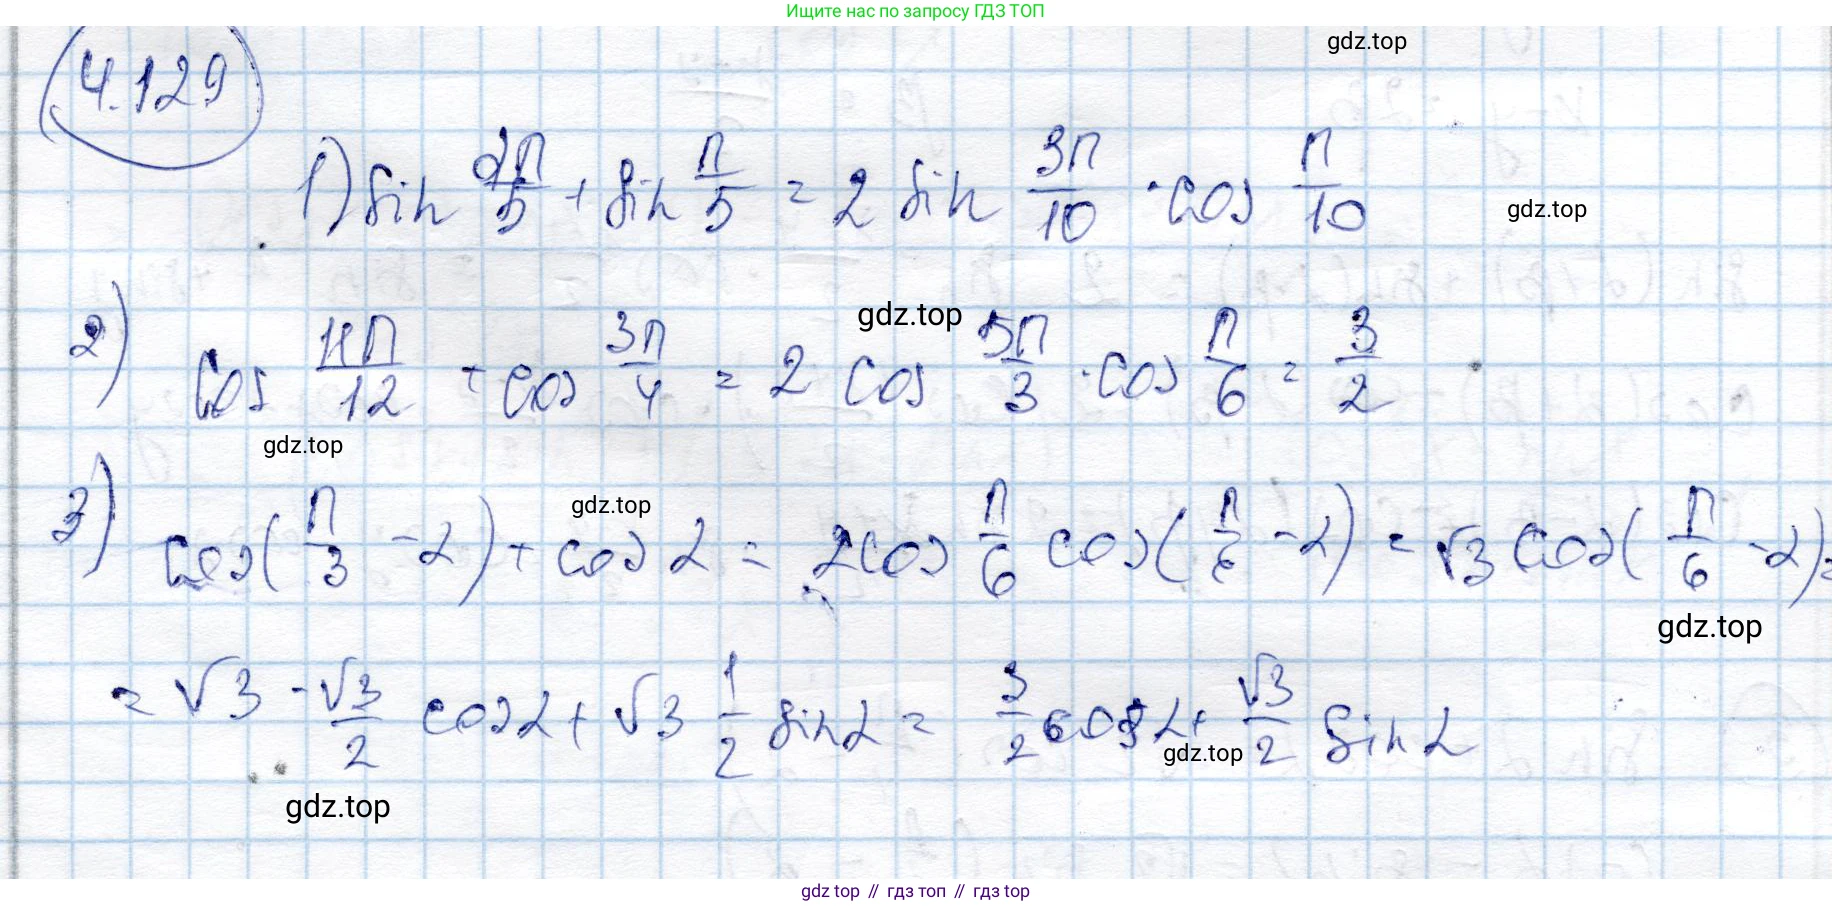 Ищите нас по запросу ГДЗ ТОП
gdz.top
4.129
1) sin 2π/5 + sin π/5 = 2 sin 3π/10 · cos π/10
gdz.top
gdz.top
2) cos 11π/12 + cos 3π/4 = 2 cos 5π/3 · cos π/6 = 3/2
gdz.top
gdz.top
3) cos(π/3 - α) + cos α = 2cos π/6 cos(π/6 - α) = √3 cos(π/6 - α) =
gdz.top
= √3 · √3/2 cos α + √3 1/2 sin α = 3/2 cos α + √3/2 sin α
gdz.top
gdz.top
gdz top // гдз топ // гдз top